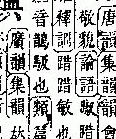 唐韻集韻
敬貌論語踧
釋訓踖踖敏也
音鵲也類篇
廣韻集韻